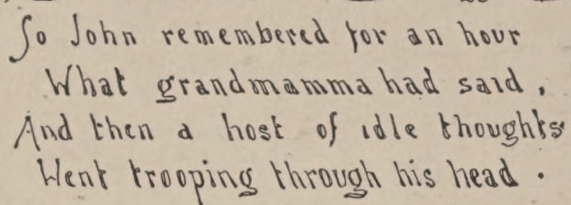 So John remembered for an hour
What grandmamma had said,
And then a host of idle thoughts
Went trooping through his head.